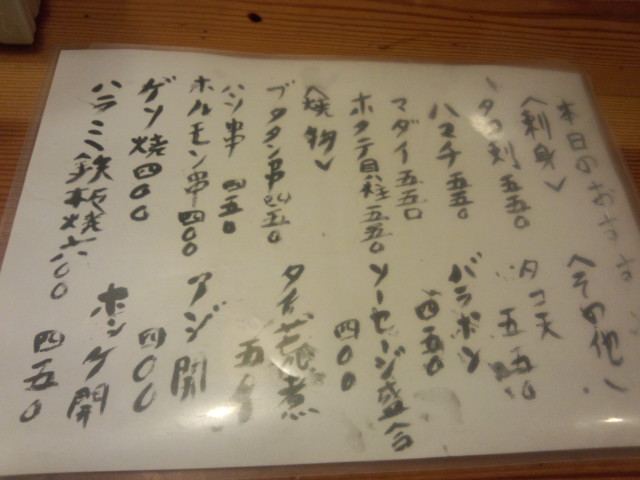 本日のおすすめ
〈刺身〉
タコ刺 五五〇
ハマチ 五五〇
マダイ 五五〇
ホタテ貝柱 五五〇
〈焼物〉
ブタタン串 四五〇
ハツ串 四五〇
ホルモン串 四〇〇
ゲソ焼 四〇〇
ハラミ鉄板焼 六〇〇
〈その他〉
タコ天 五五〇
バラポン 四五〇
ソーセージ盛合 四〇〇
煮 五
アジ開 四〇〇
ホッケ開 四五〇